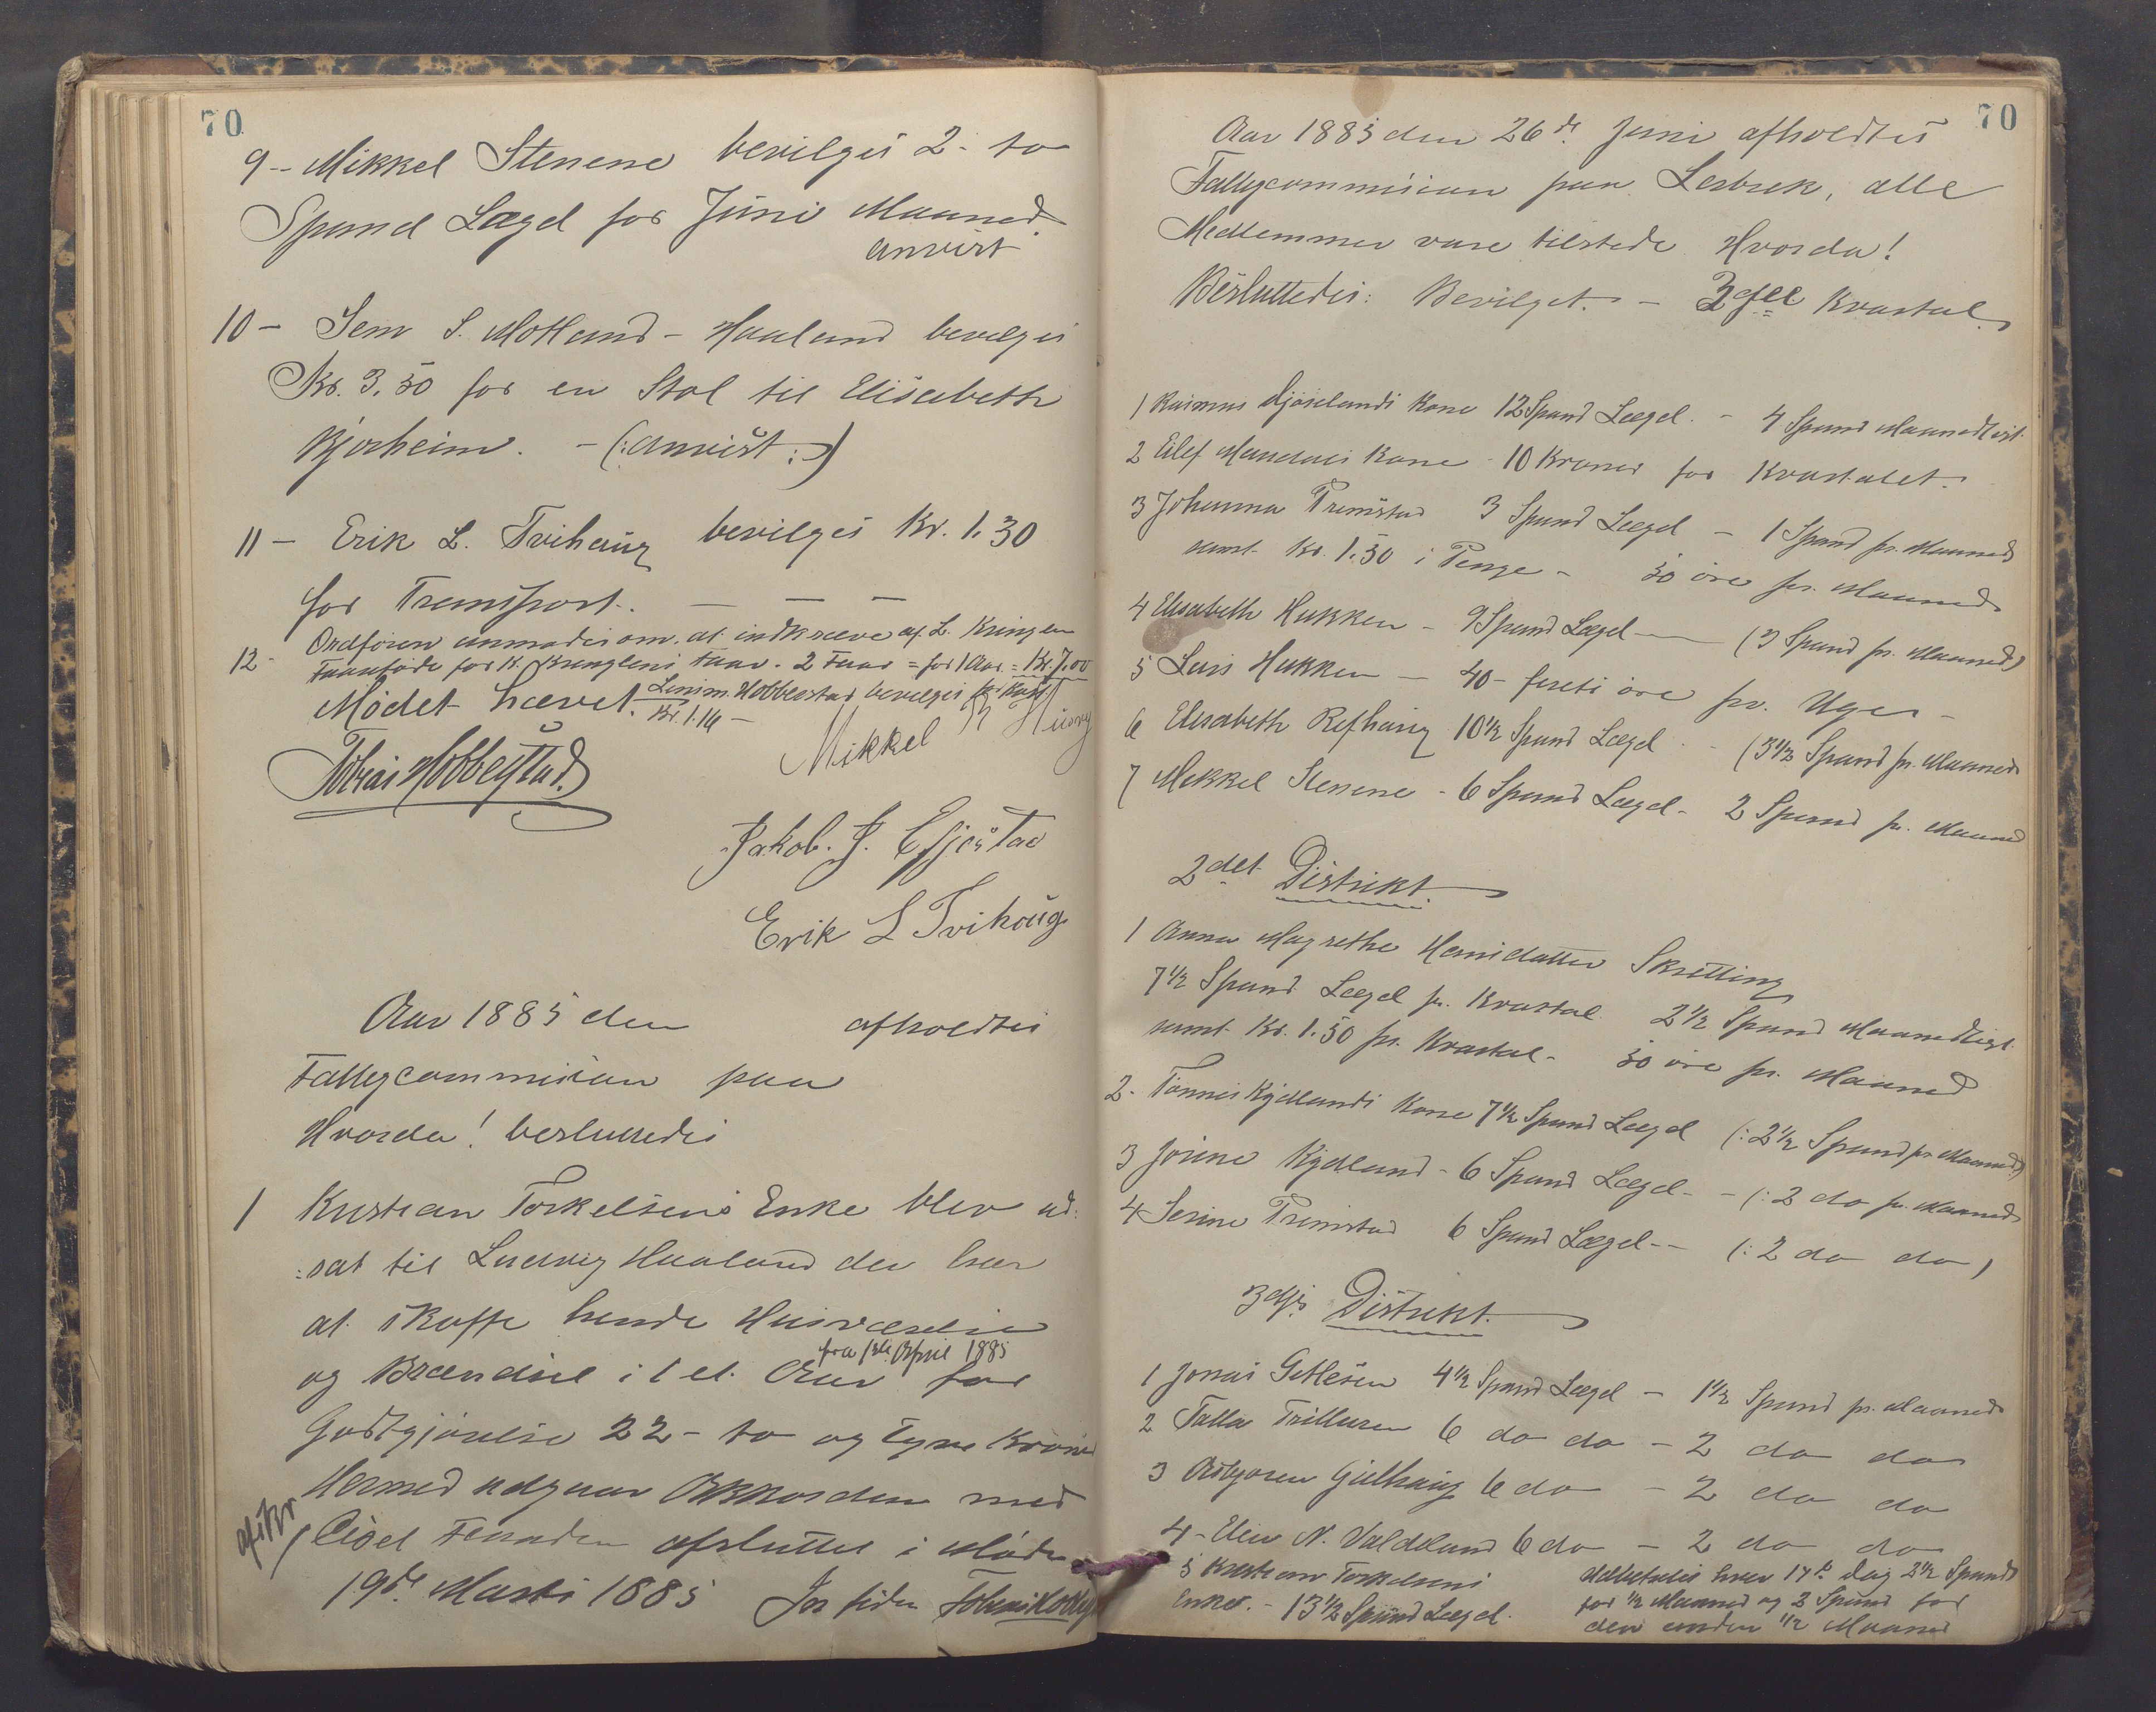 70
9 - Mikkel Stenene bevilges 2 - to
Spand Lægd for Juni Maaned.
anvist
10 - Sem S. Motland - Haaland bevilges
Kr. 3,50 for en Stol til Elisabeth
Bjorheim. - (: anvist :)
11 - Erik L. Tvihaug bevilges Kr. 1.30
for Transport. - - -
12 - Ordføren anmodes om at indkræve af L.
for K. 2 = for 1 Aar = Kr. 7.00
Mødet hævet. Hobberstad bevilges
Kr. 1.14 -
Tobias Hobberstad.
Mikkel
Jakob. J. Efjestad
Erik L Tvihoug
Aar 1885 den afholdtes
Fattigcommision paa
Hvorda! besluttedes
1 Kristian Torkelsens Enke blev ud-
:sat til Ludvig Haaland der har
at skaffe hende Huusværelse
fra 1ste April 1885
og Brændsel i 1 et Aar for
Godtgjørelse 22 - to og tyve Kroner
Hermed udgaar Akkorden med
afsluttet i Møde
19de Marts 1885
70
Aar 1885 den 26de Juni afholdtes
Fattigcommision paa Lerbrek, alle
Medlemmer vare tilstede Hvorda!
Besluttedes: Bevilget. - 3dje Kvartal.
1 Rasmus Kone 12 Spand Lægd. - 4 Spand Maanedligt.
2 Eilef Kone - 10 Kroner for Kvartalet.
3 Johanna Tremstad 3 Spand Lægd - 1 Spand pr. Maaned
samt Kr. 1.50 i Penge - 50 øre pr. Maaned
4 Elisabeth Hukken - 9 Spand Lægd - (3 Spand pr. Maaned)
5 Lars Hukken - 40 - fireti øre pr. Uge -
6 Elisabeth Refhaug 10 1/2 Spand Lægd - (3 1/2 Spand pr. Maaned
7 Mikkel Stenene - 6 Spand Lægd - 2 Spand pr. Maaned
2det Distrikt
1 Anna Magrethe Hansdatter Skretting
7 1/2 Spand Lægd pr. Kvartal 2 1/2 Spand Maanedligt
samt Kr. 1.50 pr. Kvartal - 50 øre pr. Maaned
2. Tønnes Kydlands Kone 7 1/2 Spand Lægd (: 2 1/2 Spand pr. Maaned)
3 Josine Kydland - 6 Spand Lægd - - (: 2 do pr. Maaned
4 Serine Tremstad 6 Spand Lægd - - (: 2 do do)
3dje Distrikt.
1 Jonas Gitlesen 4 1/2 Spand Lægd - 1 1/2 Spand pr. Maaned
2 Talla 6 do do - 2 do do
3 6 do - 2 do do
4 - Elen N. Valdeland 6 do - 2 do do
5 Kristian Torkelsens
Enke. - 13 1/2 Spand Lægd.
udbetales hver 14de Dag 2 1/2 Spand
for 1/2 Maaned og 2 Spand for
den anden 1/2 Maaned